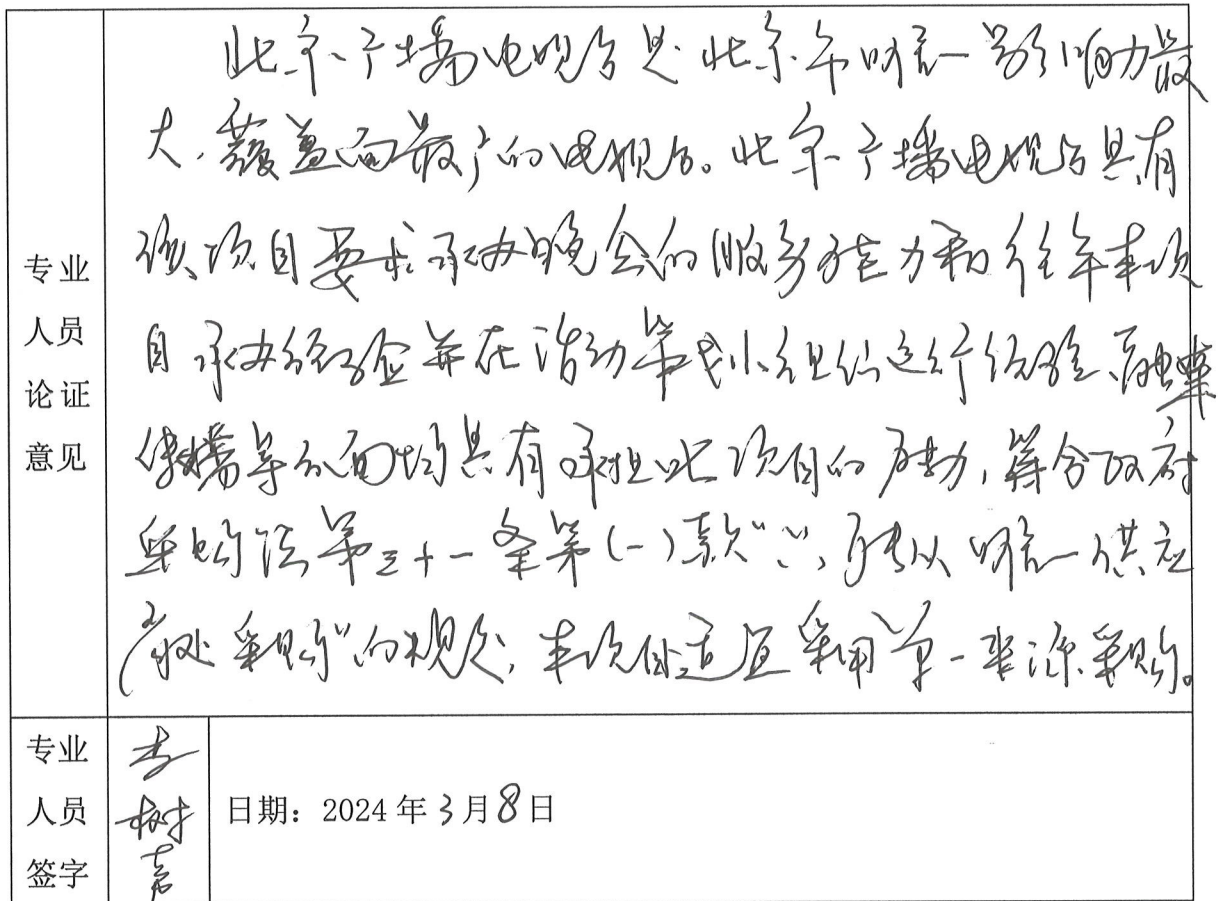 专业
人员
论证
意见
北京广播电视台是北京市唯一影响力最
大,覆盖面最广的电视台。北京广播电视台具有
该项目要求承办晚会的服务能力和往年本项
目承办经验并在活动策划、组织运行经验、融媒
传播等方面均具有承担此项目的优势,符合政府
采购法第三十一条第(一)款“只能从唯一供应
商处采购”的规定,本项目适宜采用单一来源采购。
专业
人员
签字
李树
日期:2024年3月8日